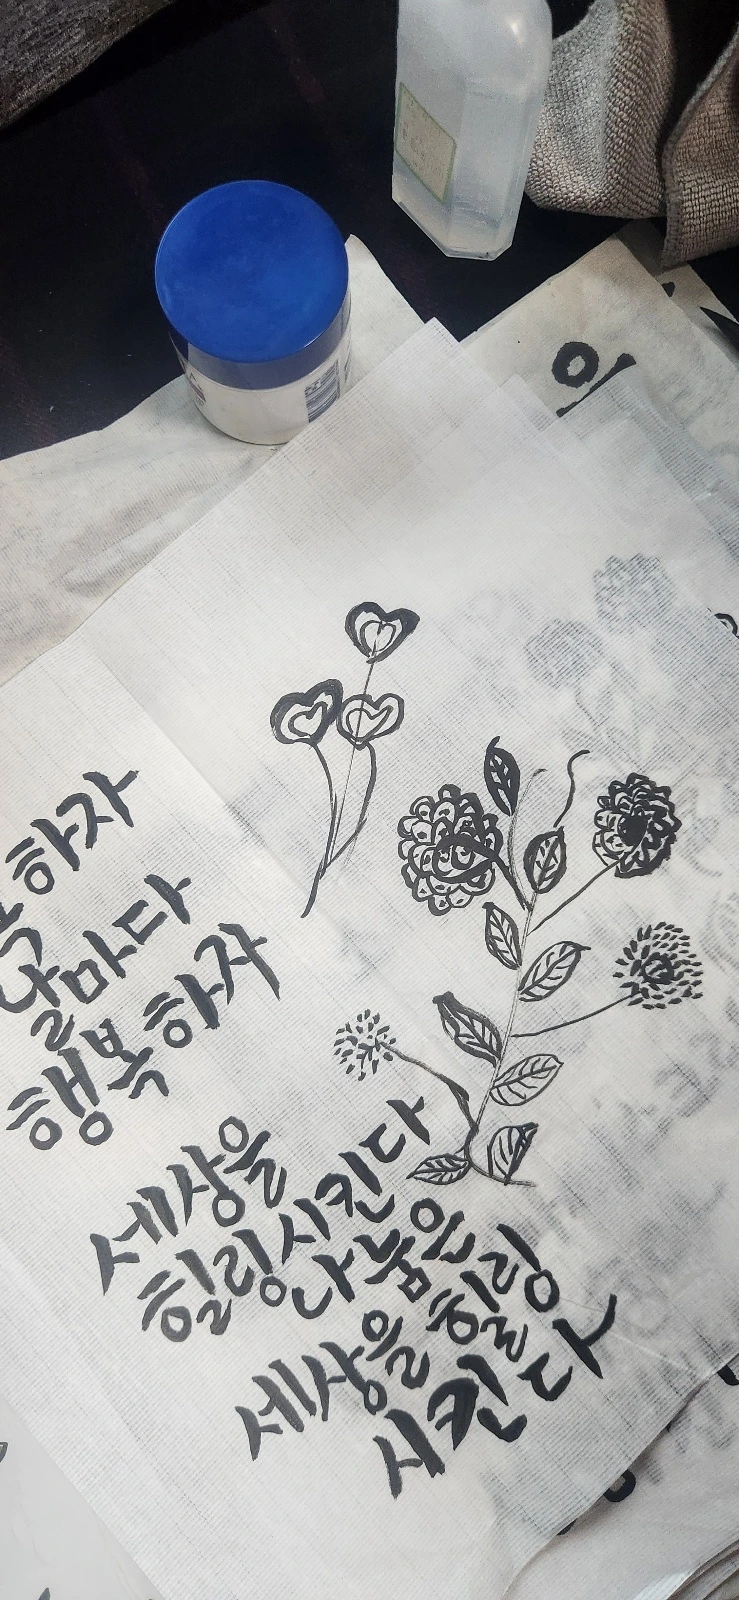 이
하자
날마다
행복하자
세상을
힐링시킨다
나눔은
세상을 힐링
시킨다